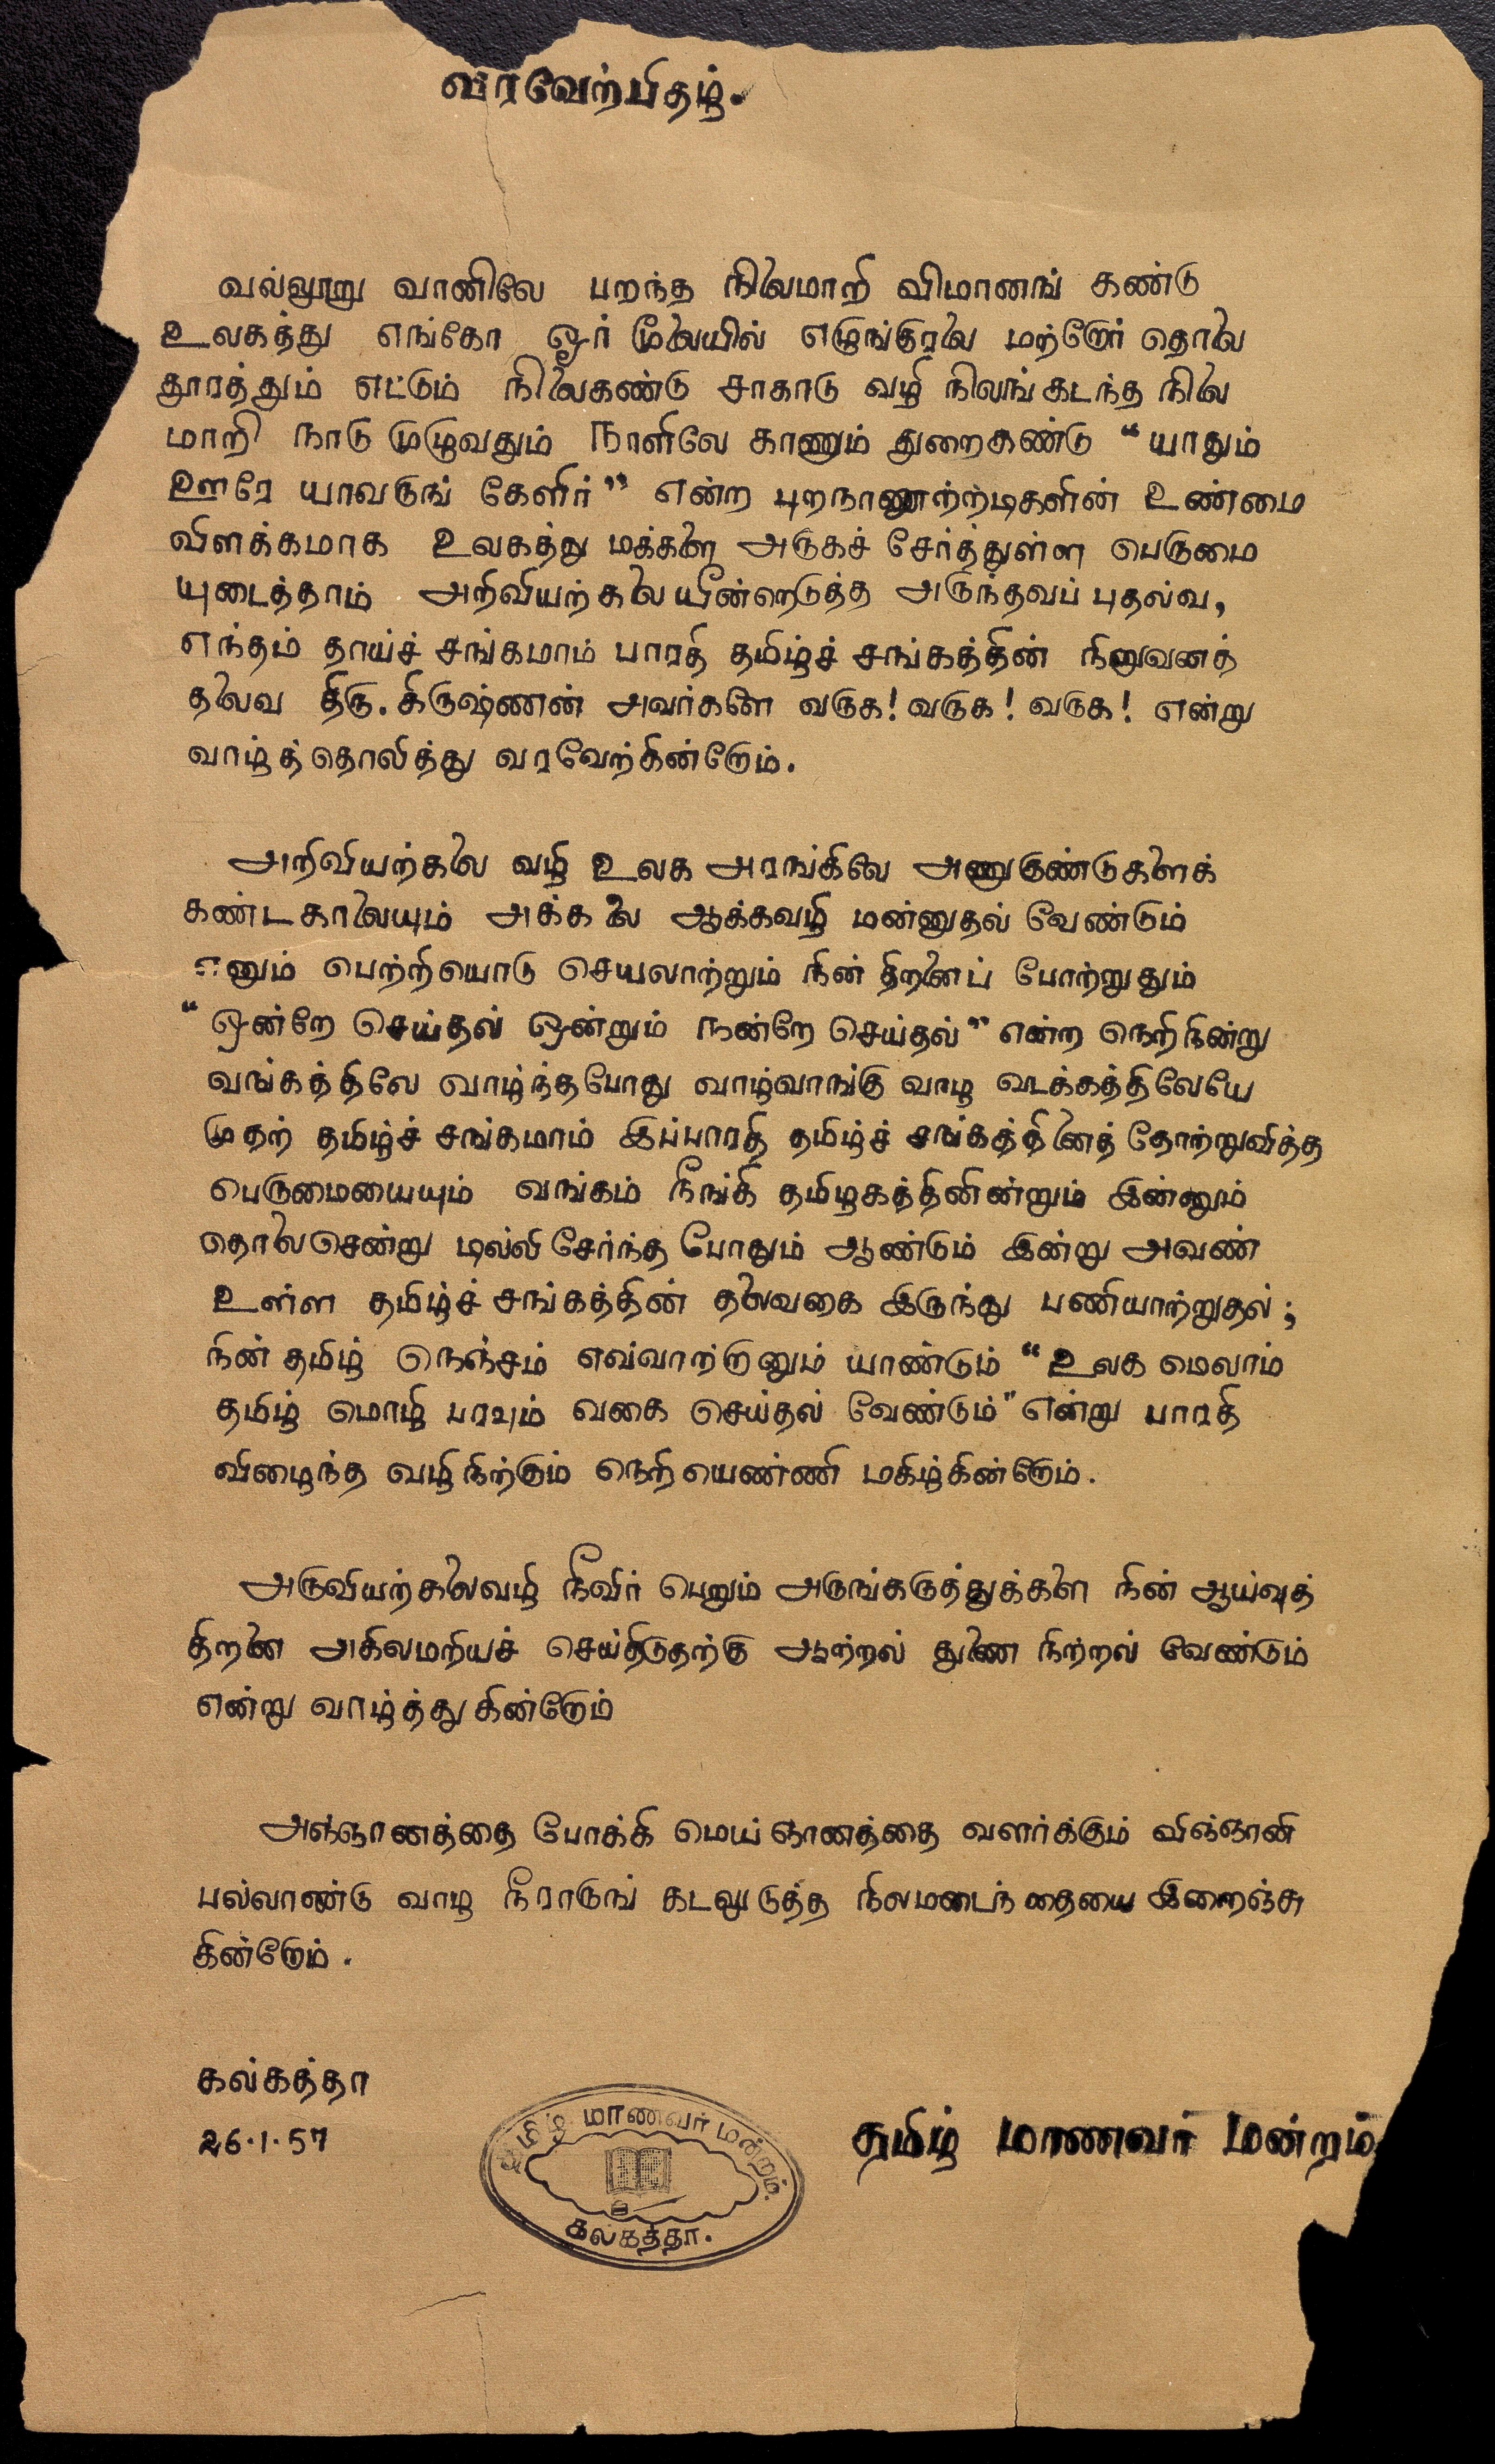 வரவேற்பிதழ்.
வல்லூறு வானிலே பறந்த நிலைமாறி விமானங் கண்டு
உலகத்து எங்கோ ஓர் மூலையில் எழுங்குரலை மற்றோர் தொலை
தூரத்தும் எட்டும் நிலைகண்டு சாகாடு வழி நிலங்கடந்த நிலை
மாறி நாடு முழுவதும் நாளிலே காணும் துறைகண்டு “யாதும்
ஊரே யாவருங் கேளிர்” என்ற புறநானூற்றடிகளின் உண்மை
விளக்கமாக உலகத்து மக்களை அருகச் சேர்த்துள்ள பெருமை
யுடைத்தாம் அறிவியற்கலை யீன்றெடுத்த அருந்தவப் புதல்வ,
எந்தம் தாய்ச் சங்கமாம் பாரதி தமிழ்ச் சங்கத்தின் நிறுவனத்
தலைவ திரு. கிருஷ்ணன் அவர்களை வருக! வருக! வருக! என்று
வாழ்த்தொலித்து வரவேற்கின்றோம்.
அறிவியற்கலை வழி உலக அரங்கிலே அணுகுண்டுகளைக்
கண்டகாலையும் அக்கலை ஆக்கவழி மன்னுதல் வேண்டும்
எனும் பெற்றியொடு செயலாற்றும் நின் திறனைப் போற்றுதும்
“ஒன்றே செய்தல் ஒன்றும் நன்றே செய்தல்” என்ற நெறிநின்று
வங்கத்திலே வாழ்ந்தபோது வாழ்வாங்கு வாழ வடக்கத்திலேயே
முதற் தமிழ்ச் சங்கமாம் இப்பாரதி தமிழ்ச் சங்கத்தினைத் தோற்றுவித்த
பெருமையையும் வங்கம் நீங்கி தமிழகத்தினின்றும் இன்னும்
தொலைசென்று டில்லி சேர்ந்த போதும் ஆண்டும் இன்று அவண்
உள்ள தமிழ்ச் சங்கத்தின் தலைவகை இருந்து பணியாற்றுதல்;
நின் தமிழ் நெஞ்சம் எவ்வாற்றானும் யாண்டும் “உலக மெலாம்
தமிழ் மொழி பரவும் வகை செய்தல் வேண்டும்” என்று பாரதி
விழைந்த வழிநிற்கும் நெறியெண்ணி மகிழ்கின்றோம்.
அருவியற்கலைவழி நீவிர் பெறும் அருங்கருத்துக்களை நின் ஆய்வுத்
திறனை அகிலமறியச் செய்திடுதற்கு ஆற்றல் துணை நிற்றல் வேண்டும்
என்று வாழ்த்துகின்றோம்
அஞ்ஞாணத்தை போக்கி மெய்ஞாணத்தை வளர்க்கும் விஞ்ஞானி
பல்லாண்டு வாழ நீராடுங் கடலுடுத்த நிலமடைந்தையை இறைஞ்சு
கின்றோம்.
கல்கத்தா
26.1.57
தமிழ் மாணவர் மன்றம்
தமிழ் மாணவர் மன்றம்.
கல்கத்தா.